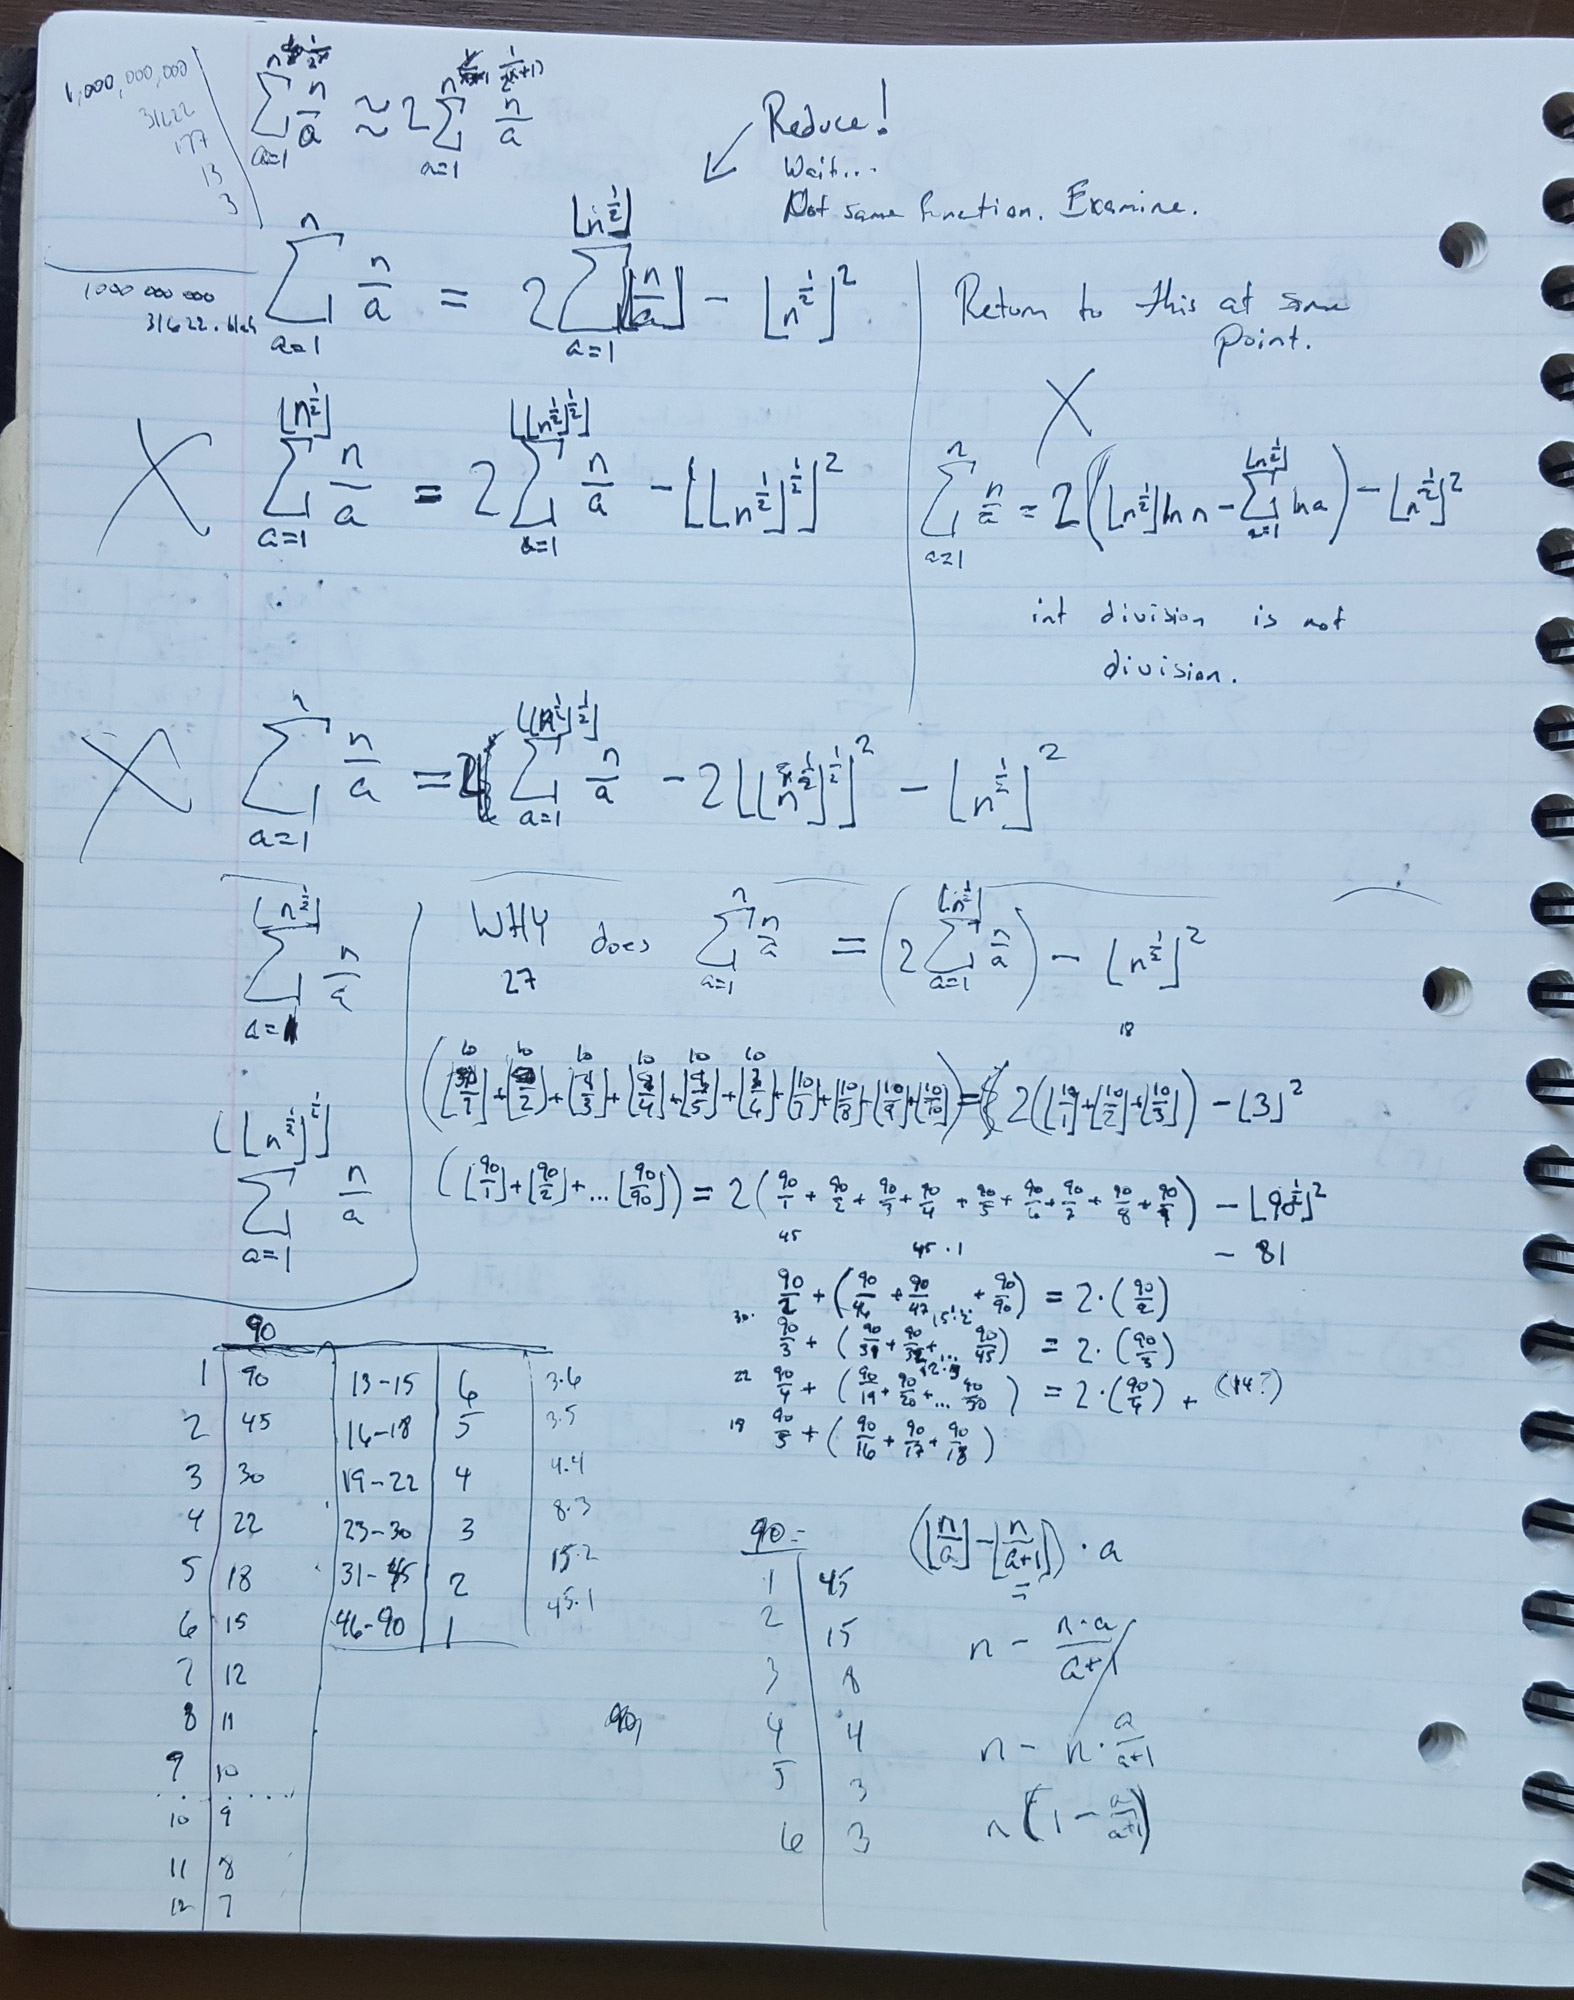 1,000,000,000
31622
177
13
3
∑ a=1 n/a ≈ 2 ∑ a=1 n/a
Reduce!
Wait...
Not same function. Examine.
1000 000 000
31622.blah
n ∑ a=1 n/a = 2 ⌊n^½⌋ ∑ a=1 ⌊n/a⌋ - ⌊n^½⌋²
Return to this at some
point.
X
⌊n^½⌋ ∑ a=1 n/a = 2 ⌊⌊n^½⌋^½⌋ ∑ a=1 n/a - ⌊⌊n^½⌋^½⌋²
X
n ∑ a=1 n/a = 2(⌊n^½⌋ ln n - ⌊n^½⌋ ∑ a=1 ln a) - ⌊n^½⌋²
int division is not
division.
X
n ∑ a=1 n/a = 4 ⌊⌊n^½⌋^½⌋ ∑ a=1 n/a - 2⌊⌊n^½⌋^½⌋² - ⌊n^½⌋²
⌊n^½⌋ ∑ a= n/a
⌊⌊n^½⌋^½⌋ ∑ a=1 n/a
WHY does n ∑ a=1 n/a = (2 ⌊n^½⌋ ∑ a=1 n/a) - ⌊n^½⌋²
27
18
(⌊10/1⌋+⌊10/2⌋+⌊10/3⌋+⌊10/4⌋+⌊10/5⌋+⌊10/6⌋+⌊10/7⌋+⌊10/8⌋+⌊10/9⌋+⌊10/10⌋) = 2(⌊10/1⌋+⌊10/2⌋+⌊10/3⌋) - ⌊3⌋²
(⌊90/1⌋+⌊90/2⌋+...⌊90/90⌋) = 2(90/1 + 90/2 + 90/3 + 90/4 + 90/5 + 90/6 + 90/7 + 90/8 + 90/9) - ⌊90^½⌋²
45
45·1
- 81
90/2 + (90/46 + 90/47 + 90/90) = 2·(90/2)
30· 15·2
90/3 + (90/31 + 90/32 + ... 90/45) = 2·(90/3)
22 90/4 + (90/19 + 90/20 + ... 90/30) = 2·(90/4) + (14?)
18 90/5 + (90/16 + 90/17 + 90/18)
90
1 90 13-15 6 3·6
2 45 16-18 5 3·5
3 30 19-22 4 4·4
4 22 23-30 3 8·3
5 18 31-45 2 15·2
6 15 46-90 1 45·1
7 12
8 11
9 10
10 9
11 8
12 7
90,
90=
1 45
2 15
3 8
4 4
5 3
6 3
(⌊n/a⌋-⌊n/a+1⌋)·a
=
n - n·a/a+1
n - n·a/a+1
n(1 - a/a+1)